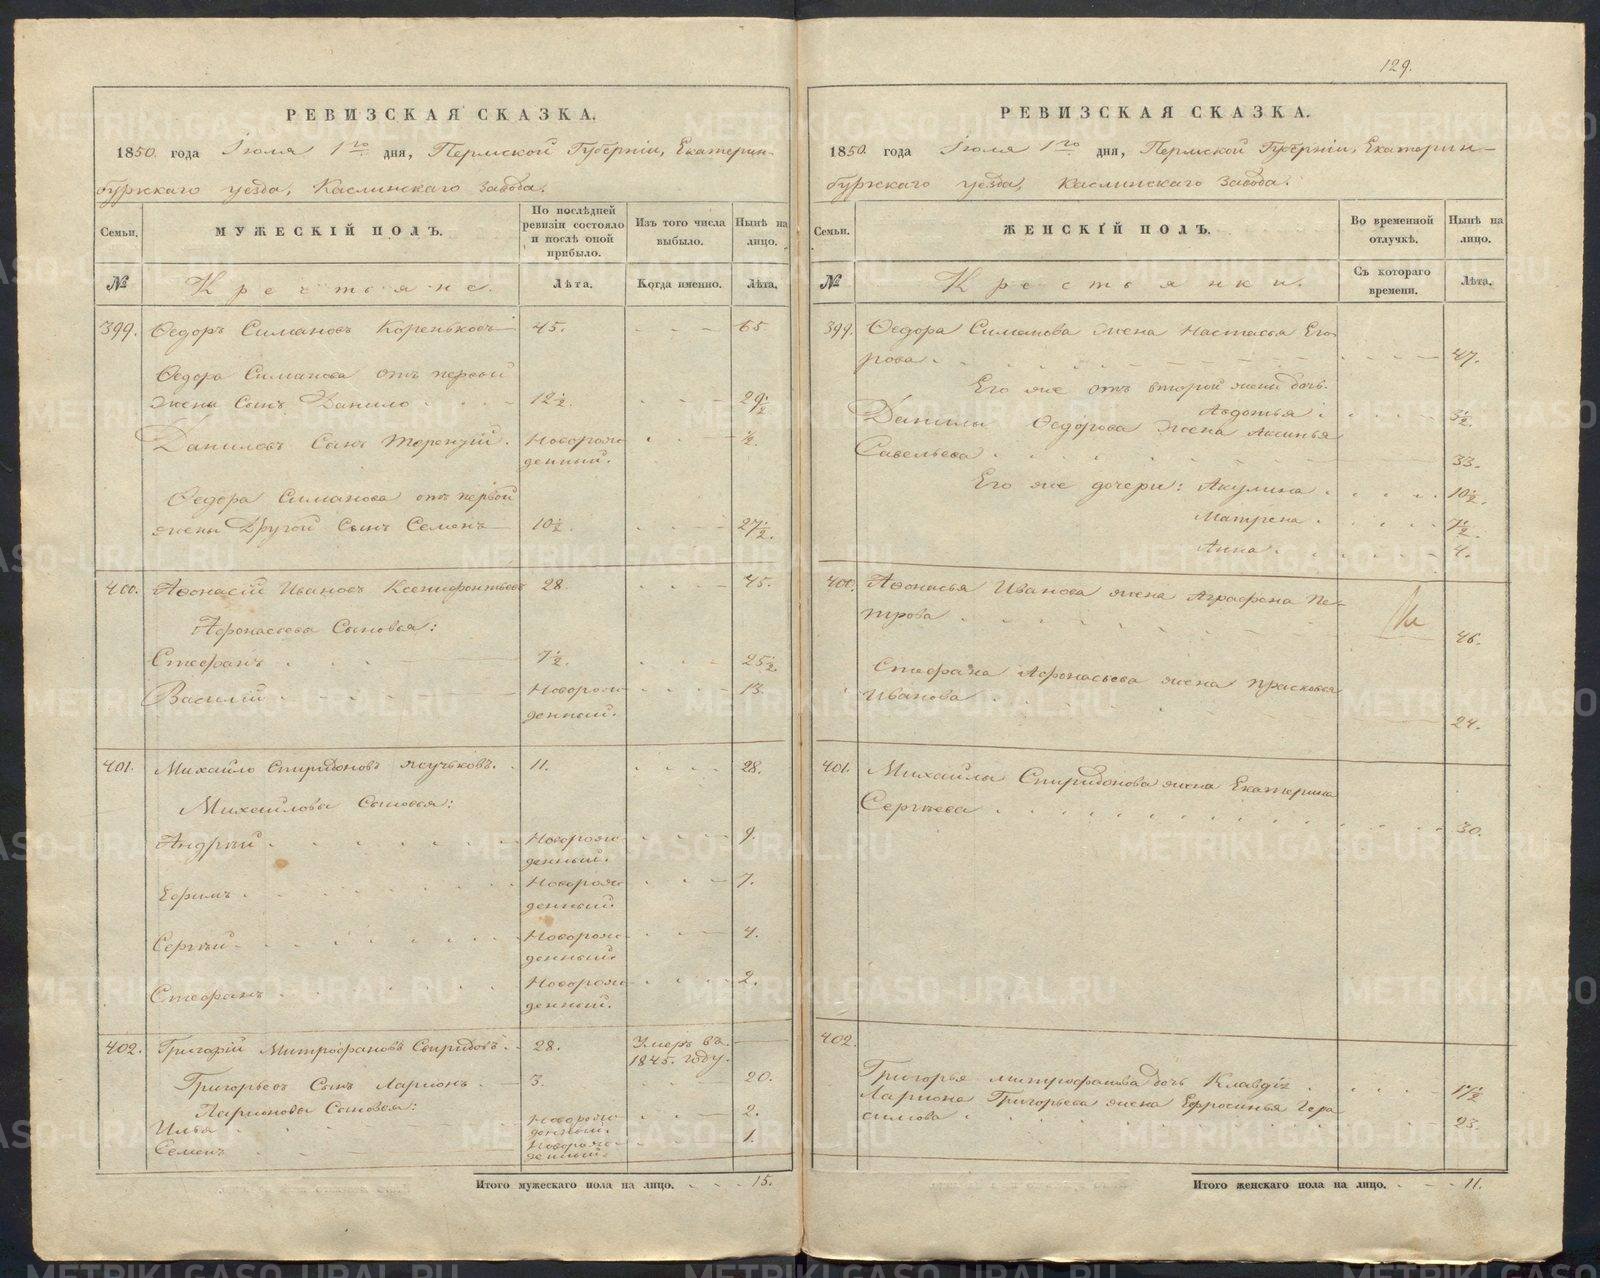 РЕВИЗСКАЯ СКАЗКА.
1850. года Іюля 1го дня, Пермской Губерніи, Екатерин-
бургскаго уезда, Каслинскаго Завода.
Семьи.
МУЖЕСКІЙ ПОЛЪ.
По послѣдней ревизіи состояло и послѣ оной прибыло.
Изъ того числа выбыло.
Нынѣ на лицо.
№
Крестьяне.
Лѣта.
Когда именно.
Лѣта.
399. Ѳедоръ Симановъ 45. 65
Ѳедора Симанова отъ первой
жены Сынъ Данило 12½. 29½
Даниловъ Сынъ Терентій. Новорож-
денный. ½.
Ѳедора Симанова отъ первой
жены Другой Сынъ Семенъ 10½. 27½.
400. Афонасій Ивановъ Ксенифонтьевъ 28. 45.
Афонасьева Сыновья:
Стефанъ 7½. 25½
Василій Новорож- 13.
денный.
401. Михайло Спиридоновъ 11. 28.
Михайлова Сыновья:
Андрѣй Новорож- 9.
денный.
Ефимъ Новорож- 7.
денный.
Сергѣй Новорож- 4.
денный.
Стефанъ Новорож- 2.
денный.
402. Григорій Митрофановъ Свиридовъ 28. Умеръ въ
1845. году.
Григорьевъ Сынъ Ларионъ 3. 20.
Ларионовы Сыновья:
Илья Новорож- 2.
денный.
Семенъ Новорож- 1.
денный.
Итого мужескаго пола на лицо. 15.
129.
РЕВИЗСКАЯ СКАЗКА.
1850. года Іюля 1го дня, Пермской Губерніи, Екатерин-
бургскаго уезда, Каслинскаго Завода.
Семьи.
ЖЕНСКІЙ ПОЛЪ.
Во временной отлучкѣ.
Нынѣ на лицо.
№
Крестьянки.
Съ котораго времени.
Лѣта.
399. Ѳедора Симанова жена Настасья Его-
рова. 47.
Его же отъ второй жены дочь
Авдотья 3½.
Данилы Ѳедорова жена Аксинья
Савельева 33.
Его же дочери: Акулина 10½.
Матрена 7½.
Анна 4.
400. Афонасья Иванова жена Аграфена Пе-
трова 46.
Стефана Афонасьева жена Прасковья
Иванова 24.
401. Михайлы Спиридонова жена Екатерина
Сергѣева 30.
402.
Григорья Митрофанова дочь Клавдія 17½
Лариона Григорьева жена Ефросинья Гера-
симова 23.
Итого женскаго пола на лицо. 11.
METRIKI.GASO-URAL.RU